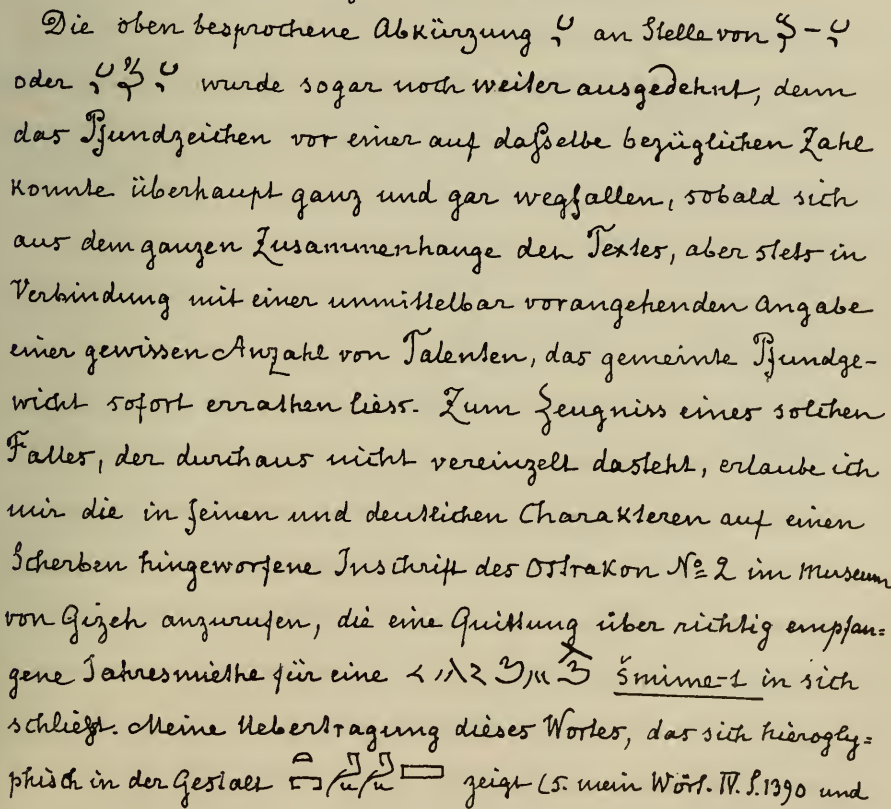 Die oben besprochene Abkürzung an Stelle von
oder wurde sogar noch weiter ausgedehnt, denn
das Pfundzeichen vor einer auf daſselbe bezüglichen Zahl
konnte überhaupt ganz und gar wegfallen, sobald sich
aus dem ganzen Zusammenhange des Textes, aber stets in
Verbindung mit einer unmittelbar vorangehenden Angabe
einer gewissen Anzahl von Talenten, das gemeinte Pfundge-
wicht sofort errathen liess. Zum Zeugniss eines solchen
Falles, der durchaus nicht vereinzelt dasteht, erlaube ich
mir die in feinen und deutlichen Charakteren auf einen
Scherben hingeworfene Inschrift des Ostrakon № 2 im Museum
von Gizeh anzurufen, die eine Quittung über richtig empfan=
gene Jahresmiethe für eine šmime-t in sich
schließt. Meine Uebertragung dieses Wortes, das sich hierogly=
phisch in der Gestalt zeigt (s. mein Wört. IV. S. 1390 und